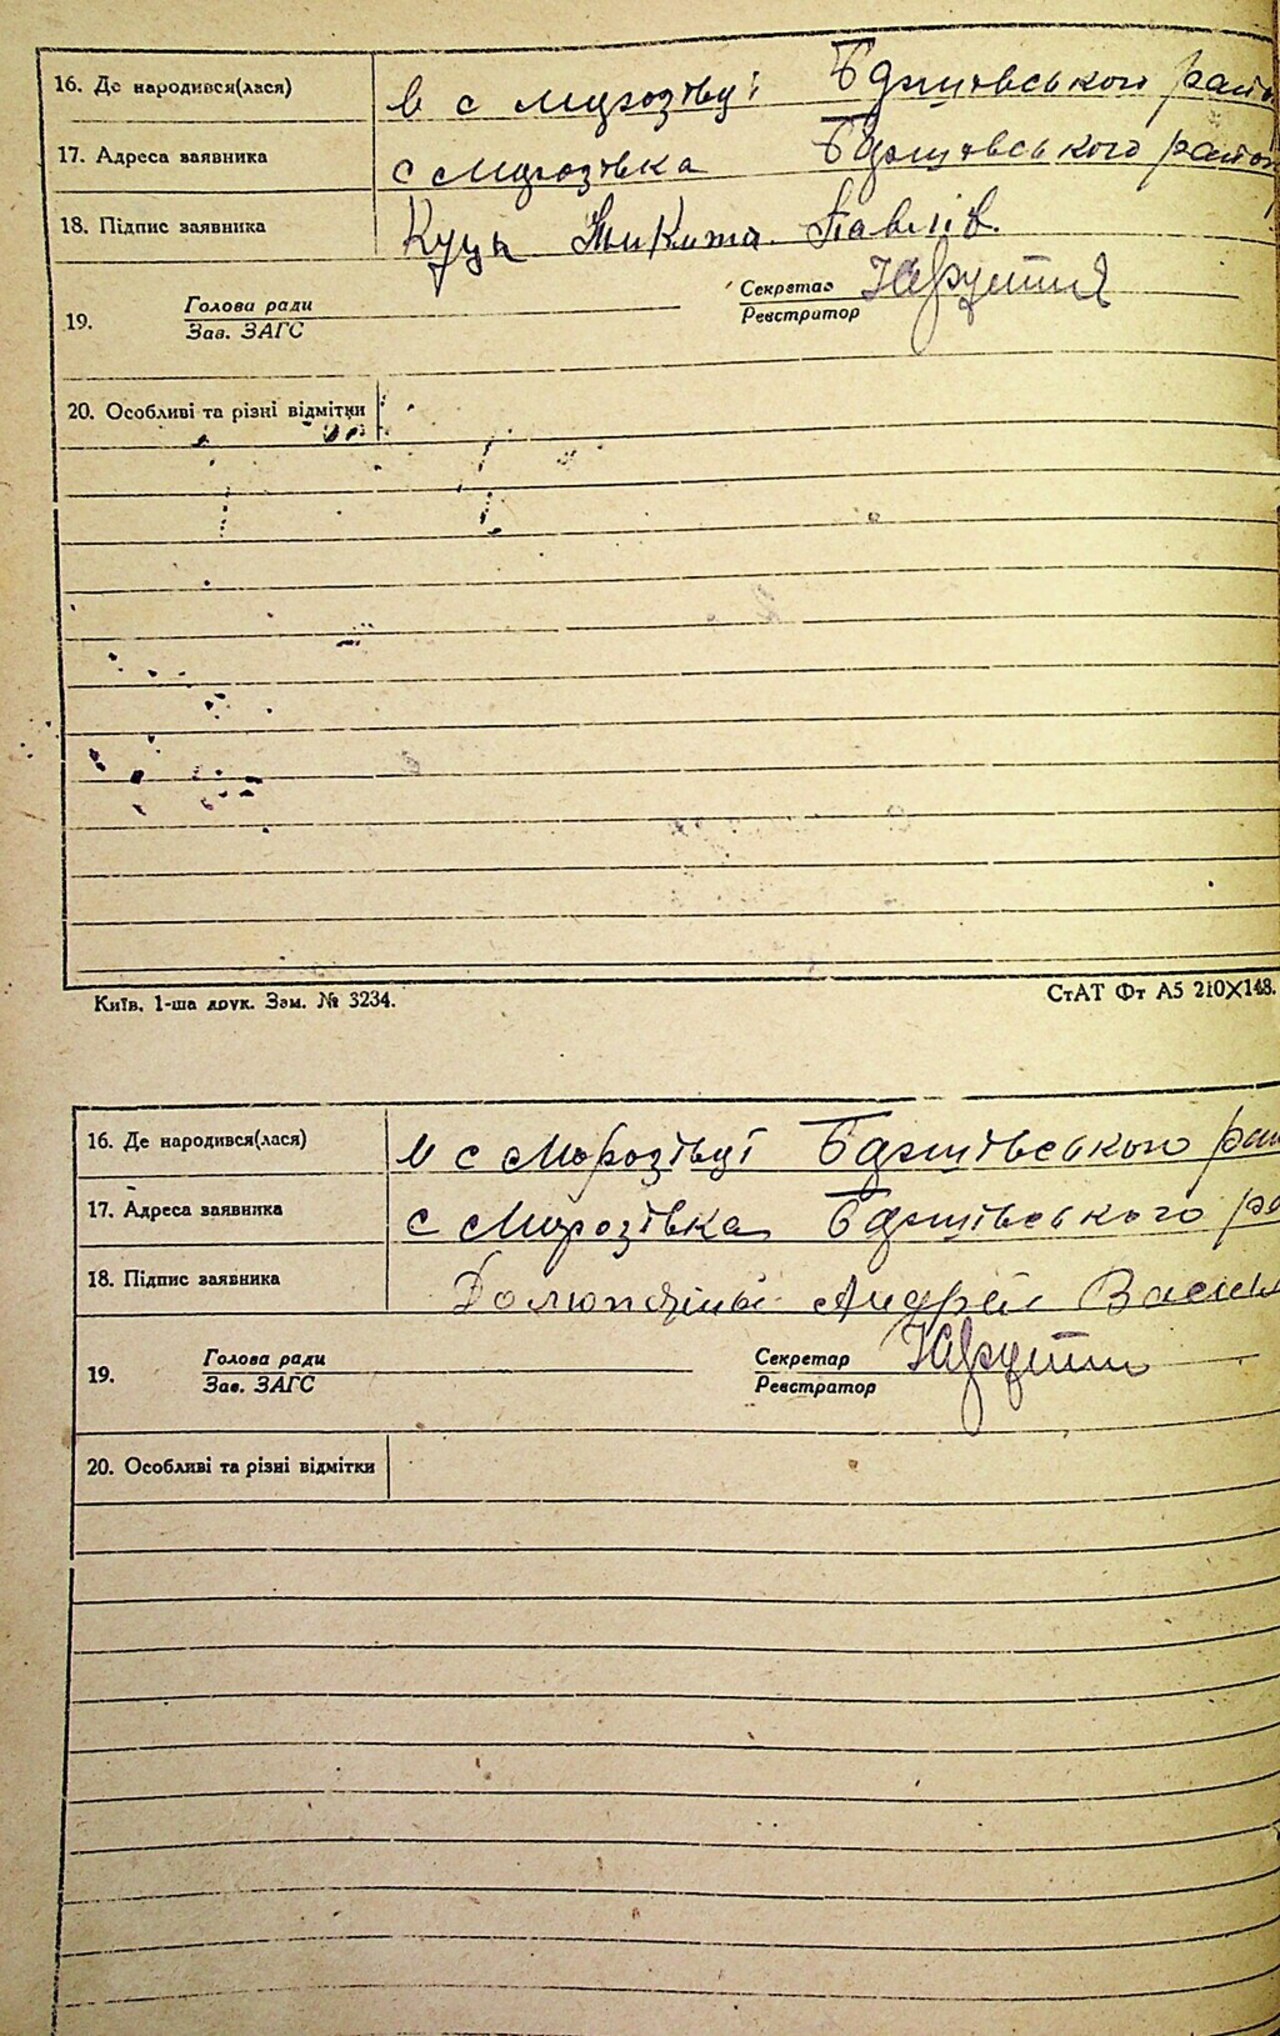 16. Де народився(лася) в с Морозівці Баришівського рай
17. Адреса заявника с Морозівка Баришівського район
18. Підпис заявника Куць Микита Павлів.
19. Голова ради Секретар
Зав. ЗАГС Реєстратор
20. Особливі та різні відмітки
Київ, 1-ша друк. Зам. № 3234. СтАТ Фт А5 210X148.
16. Де народився(лася) в с Морозівці Баришівського рай
17. Адреса заявника с Морозівка Баришівського ра
18. Підпис заявника Андрей Васил
19. Голова ради Секретар
Зав. ЗАГС Реєстратор
20. Особливі та різні відмітки